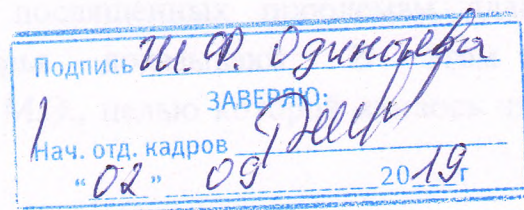 Подпись Ш. Ф. Одинаева
ЗАВЕРЯЮ:
Нач. отд. кадров
"02" 09 2019г